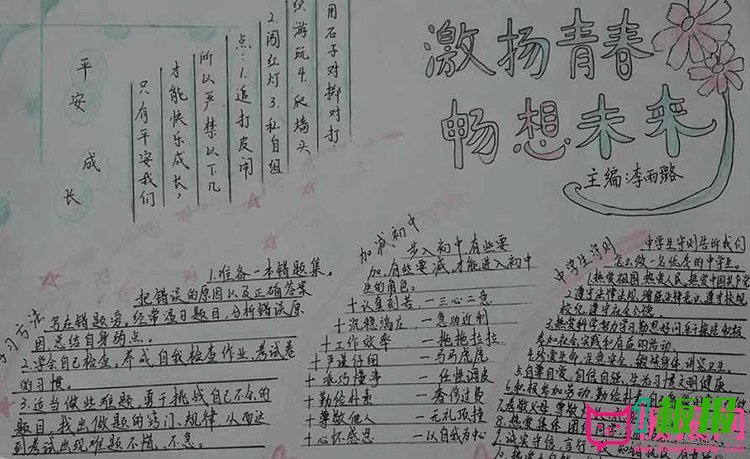 激扬青春
畅想未来
主编:李雨璐
平安成长
只有平安我们
才能快乐成长,
所以严禁以下几
点:1.追打皮闹
2.闯红灯3.私自组
织游玩4.爬墙头
用石子对掷对打
学习方法
1.准备一本错题集,
把错误的原因以及正确答案
写在错题旁,经常温习题目,分析错误原
因,总结自身弱点。
2.学会自己检查,养成自我检查作业、考试卷
的习惯。
3.适当做些难题,勇于挑战自己不会的
题目,找出做题的窍门、规律,从而达
到考试出现难题不慌、不急。
加减初中
步入初中有些要
加,有些要减,才能进入初中
生的角色。
+认真刻苦 —三心二意
+沉稳端庄 —急功近利
+工作效率 —拖拖拉拉
+严谨仔细 —马马虎虎
+乖巧懂事 —任性调皮
+勤俭朴素 —奢侈浪费
+尊敬他人 —无礼顶撞
+心怀感恩 —以自我为中心
中学生守则
中学生守则告诉我们
怎么做一名优秀的中学生。
1.热爱祖国,热爱人民,热爱中国共产党
2.遵守法律法规,增强法律意识,遵守校规
校纪,遵守社会公德。
3.热爱科学,努力学习,勤思好问,乐于探究,积极
参加社会实践和有益的活动。
4.珍爱生命,注意安全,锻炼身体,讲究卫生。
5.自尊自爱,自信自强,生活习惯文明健康。
6.积极参加劳动,勤俭朴素
7.孝敬父母,尊敬
8.热爱集体,团结
9.诚实守信,言行一